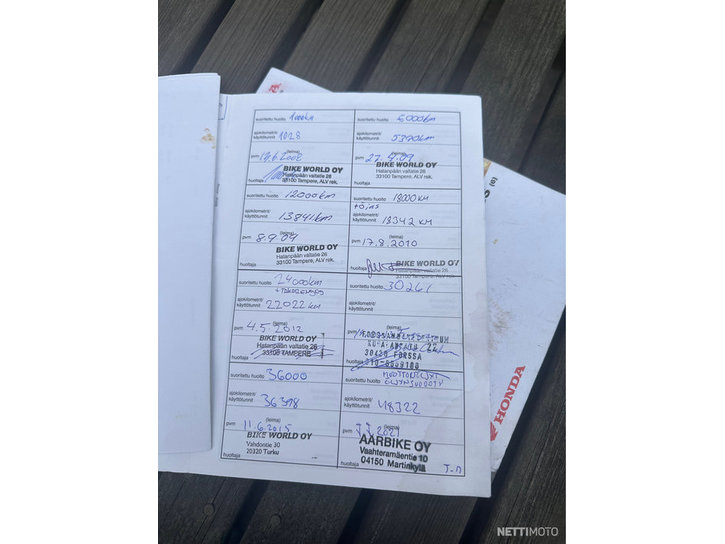 suoritettu huolto 1000km
ajokilometrit/
käyttötunnit 1028
pvm 19.6.2008 (leima)
BIKE WORLD OY
Hatanpään valtatie 26
33100 Tampere, ALV rek.
huoltaja
suoritettu huolto 6000km
ajokilometrit/
käyttötunnit 5390km
pvm 27.4.09 (leima)
BIKE WORLD OY
Hatanpään valtatie 26
33100 Tampere, ALV rek.
huoltaja
suoritettu huolto 12000km
ajokilometrit/
käyttötunnit 13841km
pvm 8.9.09 (leima)
BIKE WORLD OY
Hatanpään valtatie 26
33100 Tampere, ALV rek.
huoltaja
suoritettu huolto 18000KM
ajokilometrit/
käyttötunnit 18342 KM
pvm 17.8.2010 (leima)
BIKE WORLD OY
Hatanpään valtatie 26
33100 Tampere, ALV rek.
huoltaja
suoritettu huolto 24000km
ajokilometrit/
käyttötunnit 22022 km
pvm 4.5.2012 (leima)
BIKE WORLD OY
Hatanpään valtatie 26
33100 TAMPERE
huoltaja
suoritettu huolto 30261
ajokilometrit/
käyttötunnit
pvm (leima)
30420 FORSSA
huoltaja
suoritettu huolto 36000
ajokilometrit/
käyttötunnit 36398
pvm 11.6.2015 (leima)
BIKE WORLD OY
Vahdontie 30
20320 Turku
huoltaja
suoritettu huolto
ajokilometrit/
käyttötunnit 48322
pvm 7.7.2021 (leima)
AARBIKE OY
Vaahteramäentie 10
04150 Martinkylä
huoltaja
HONDA
NETTIMOTO